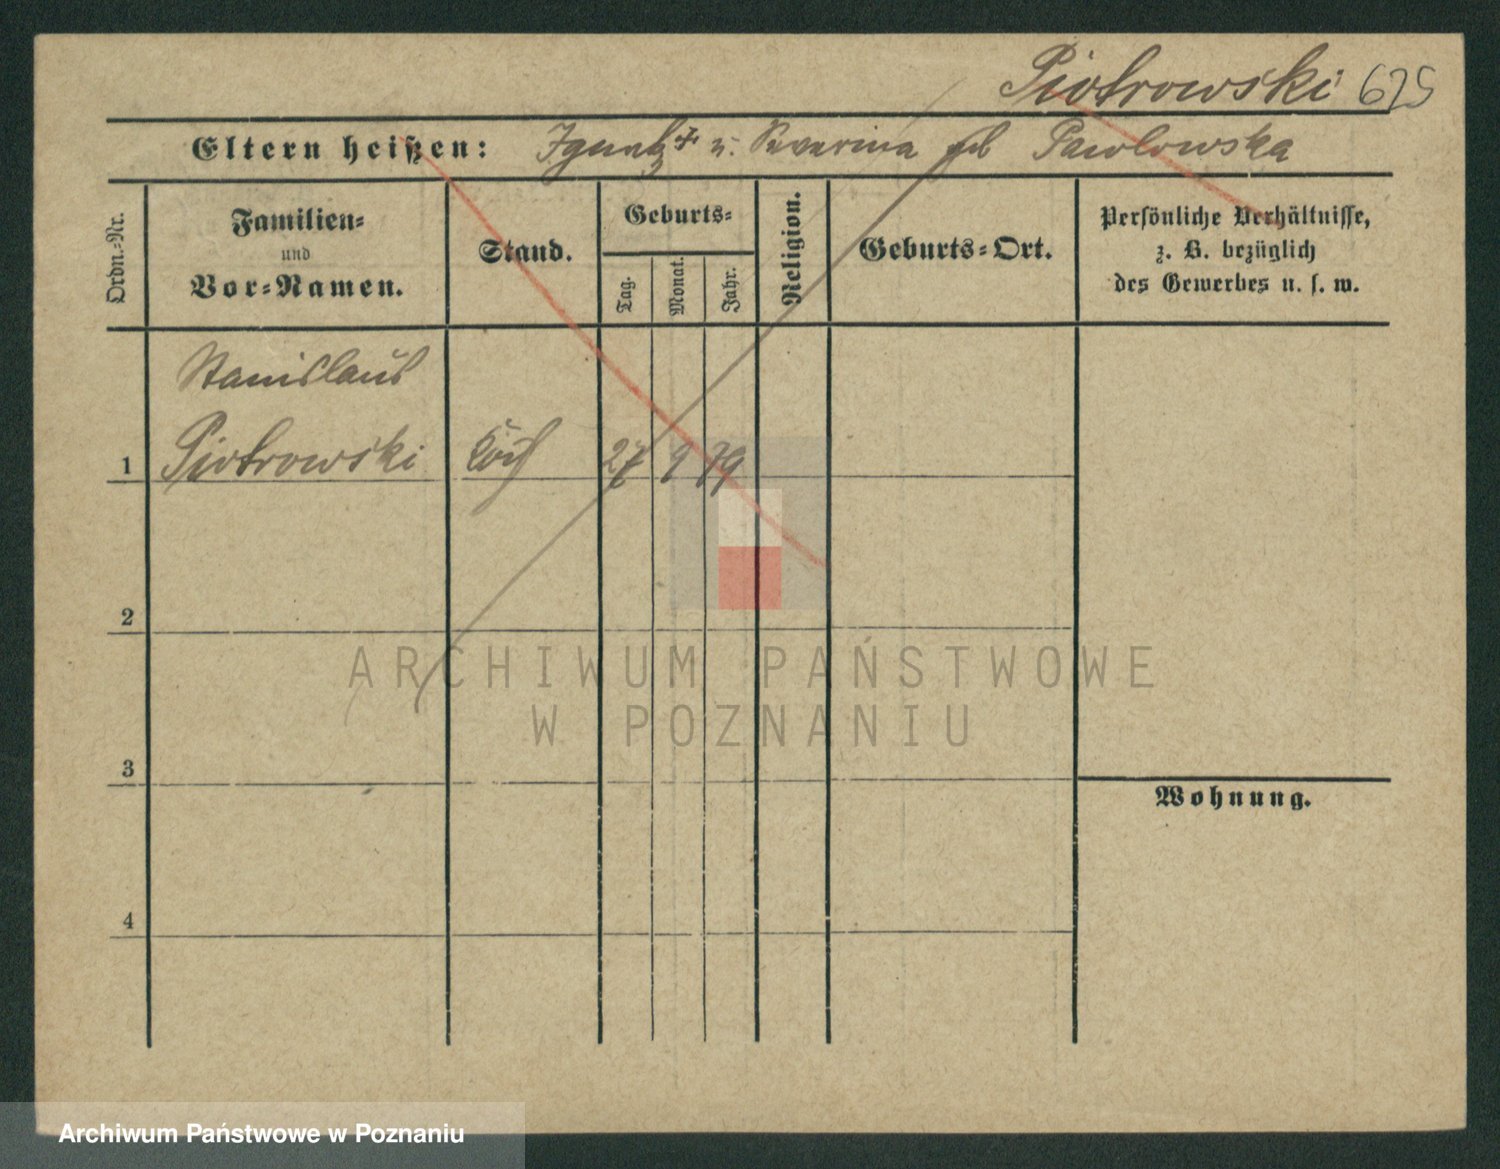 Piotrowski 625
Eltern heißen: Ignatz + u. Severina geb Pawlowska
Ordn.-Nr.
Familien-
und
Vor-Namen.
Stand.
Geburts-
Tag.
Monat.
Jahr.
Religion.
Geburts-Ort.
Persönliche Verhältnisse,
z. B. bezüglich
des Gewerbes u. s. w.
Stanislaus
1 Piotrowski 27 9 79
2
3
4
Wohnung.
ARCHIWUM PAŃSTWOWE
W POZNANIU
Archiwum Państwowe w Poznaniu